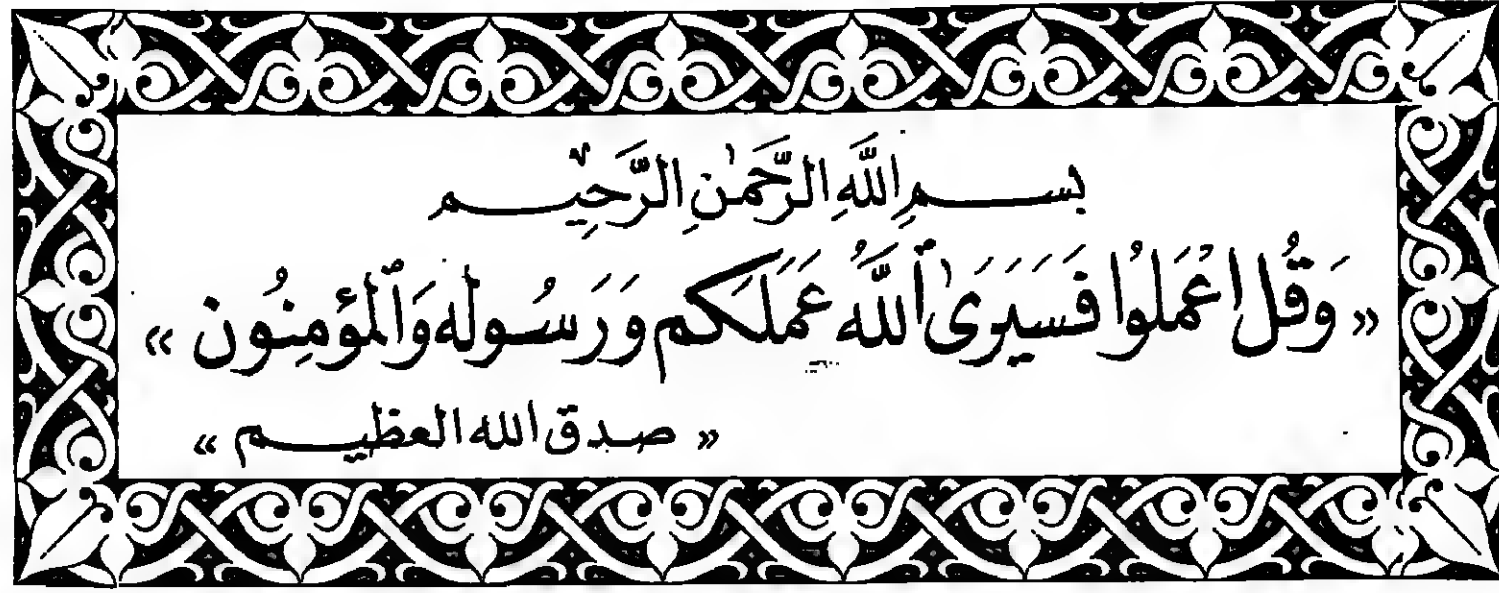 بِسْمِ اللَّهِ الرَّحْمٰنِ الرَّحِيْمِ
« وَقُل اِعْمَلُوا فَسَيَرَىٰ ٱللَّهُ عَمَلَكُم وَرَسُولُه وَٱلْمُؤمِنُون »
« صدق الله العظيم »